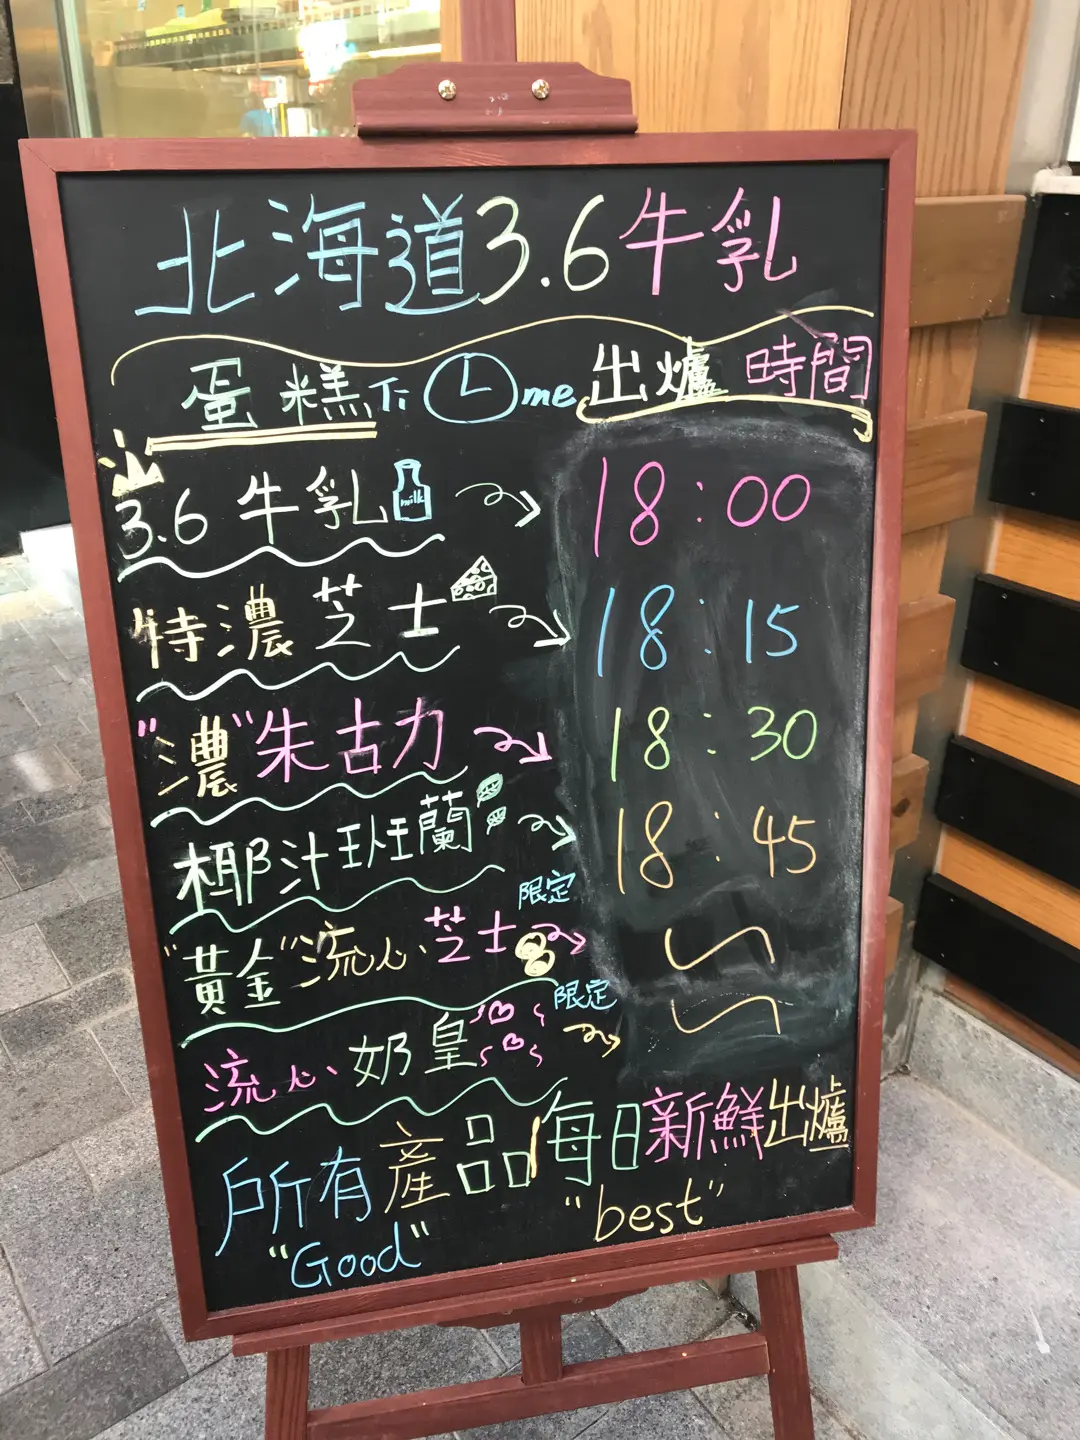 北海道3.6牛乳
蛋糕 Time 出爐時間
3.6牛乳 milk 18:00
特濃芝士 18:15
"濃"朱古力 18:30
椰汁班蘭 18:45
限定
"黃金"流心芝士
限定
流心奶皇
所有產品每日新鮮出爐
"Good" "best"